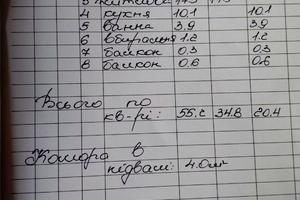 4 кухня 10.1 10.1
5 ванна 3.9 3.9
6 вбиральня 1.2 1.2
7 балкон 0,3 0,3
8 балкон 0.6 0.6
Всього по
кв-рі: 55.2 34.8 20.4
Комора в
підвалі: 4.0 м²